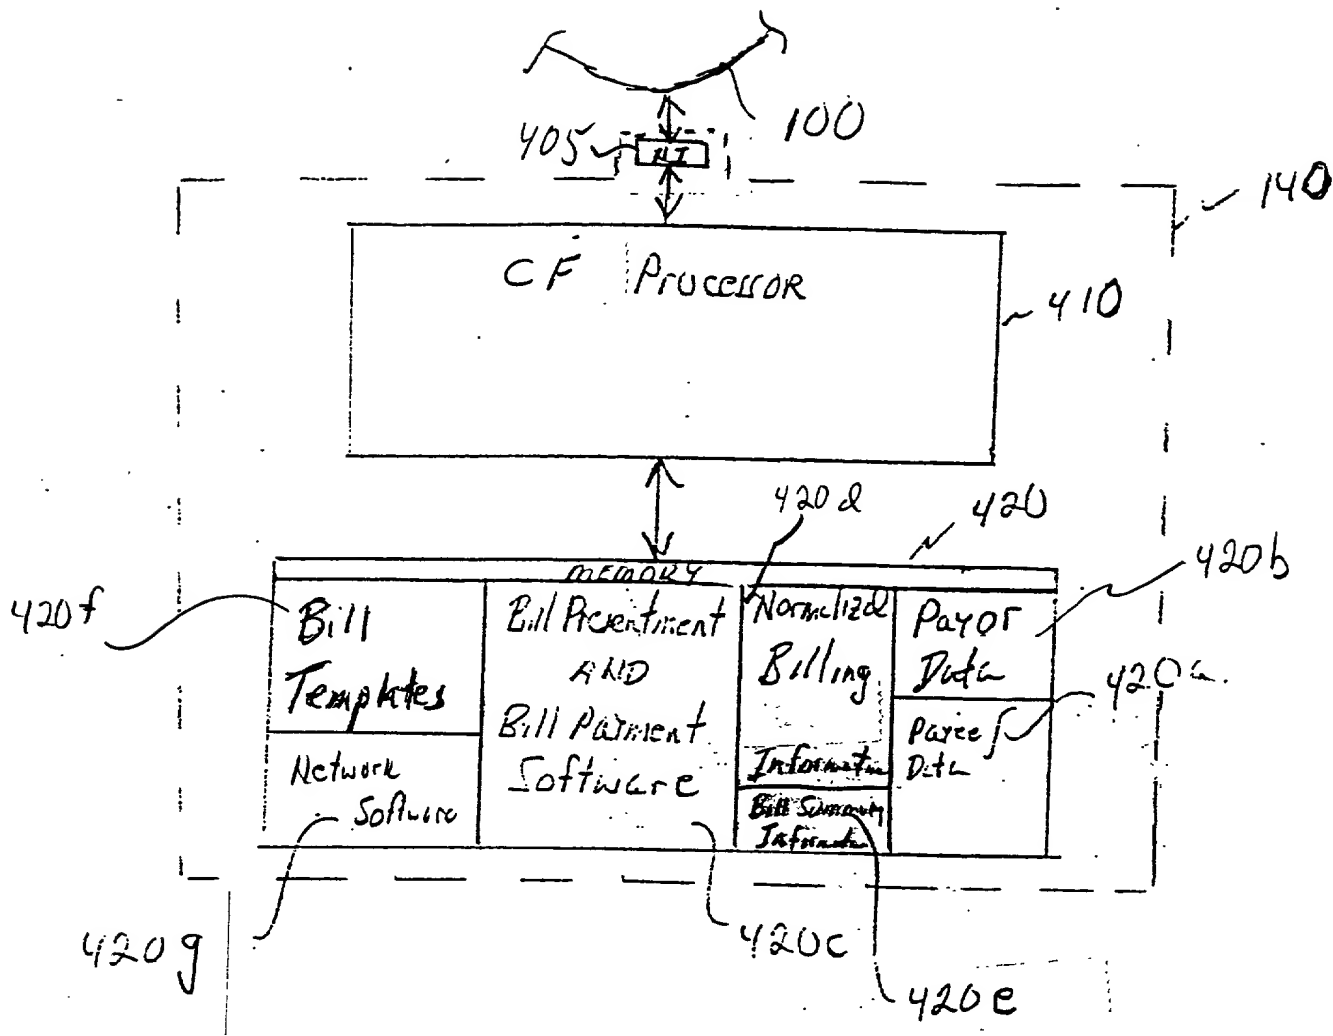 100
405
NI
140
CF Processor
410
420d
420
420b
MEMORY
420f
Bill
Templates
Bill Presentment
AND
Bill Payment
Software
Normalized
Billing
Information
Payor
Data
420a
Payee
Data
Network
Software
Bill Summary
Information
420g
420c
420e